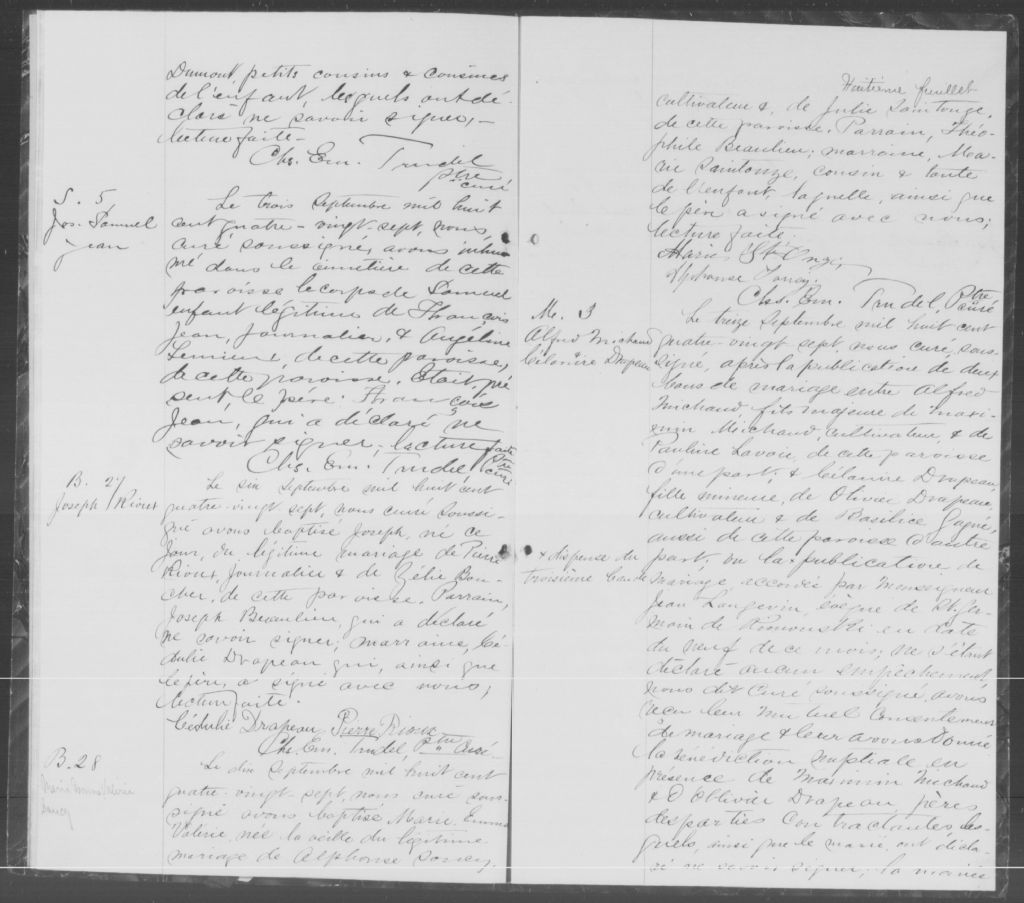 Dumont, petits cousins & cousines
de l'enfant, lesquels ont dé-
claré ne savoir signer, -
lecture faite -
Chs. Em. Trudel
ptre
curé
S. 5
Jos. Samuel
Jean
Le trois Septembre mil huit
cent quatre-vingt-sept, nous,
curé soussigné, avons inhu-
mé dans le cimetière de cette
paroisse le corps de Samuel
enfant légitime de François
Jean, journalier, & Angéline
Lemieux, de cette paroisse,
de cette paroisse. Etait pré
sent, le père: François
Jean, qui a déclaré ne
savoir signer, lecture faite
Chs. Em. Trudel Ptre
curé
B. 27
Joseph Rioux
Le six Septembre mil huit cent
quatre-vingt sept, nous curé soussi-
gné avons baptisé Joseph, né ce
jour, du légitime mariage de Pierre
Rioux, journalier & de Zélie Bou-
cher, de cette paroisse. Parrain,
Joseph Beaulieu, qui a déclaré
ne savoir signer; marraine, Cé-
dulie Drapeau qui, ainsi que
le père, a signé avec nous;
lecture faite.
Cédulie Drapeau Pierre Rioux
Chs. Em. Trudel, Ptre Curé
B. 28
Le dix Septembre mil huit cent
quatre-vingt sept, nous curé sous-
signé avons baptisé Marie Emma
Valérie née la veille du légitime
mariage de Alphonse
Huitième feuillet
cultivateur &, de Julie Saintonge,
de cette paroisse. Parrain, Théo-
phile Beaulieu; marraine, Ma-
rie Saintonge, cousin & tante
de l'enfant, laquelle, ainsi que
le père a signé avec nous;
lecture faite.
Marie St Onge,
Alphonse
Chs. Em. Trudel, Ptre
curé
M. 3
Alfred Michaud
&
Célanire Drapeau
Le treize Septembre mil huit cent
quatre-vingt sept, nous curé, sous-
signé, après la publication de deux
bans de mariage entre Alfred
Michaud, fils majeur de Maxi-
min Michaud, cultivateur, & de
Pauline Lavoie, de cette paroisse
d'une part; & Célanire Drapeau,
fille mineure, de Olivier Drapeau,
cultivateur & de Basilice Gagné,
aussi de cette paroisse d'autre
part; vu la x publication de
x dispense du
troisième ban de
mariage, accordée par Monseigneur
Jean Langevin, évêque de St. Ger-
main de Rimouski en date
du neuf de ce mois; ne s'étant
déclaré aucun empêchement,
nous dit curé soussigné, avons
reçu leur mutuel consentement
de mariage & leur avons donné
la bénédiction nuptiale en
présence de Maximin Michaud
& D'Ollivier Drapeau, pères
des parties contractantes, les-
quels, ainsi que le marié, ont décla-
ré ne savoir signer; la mariée